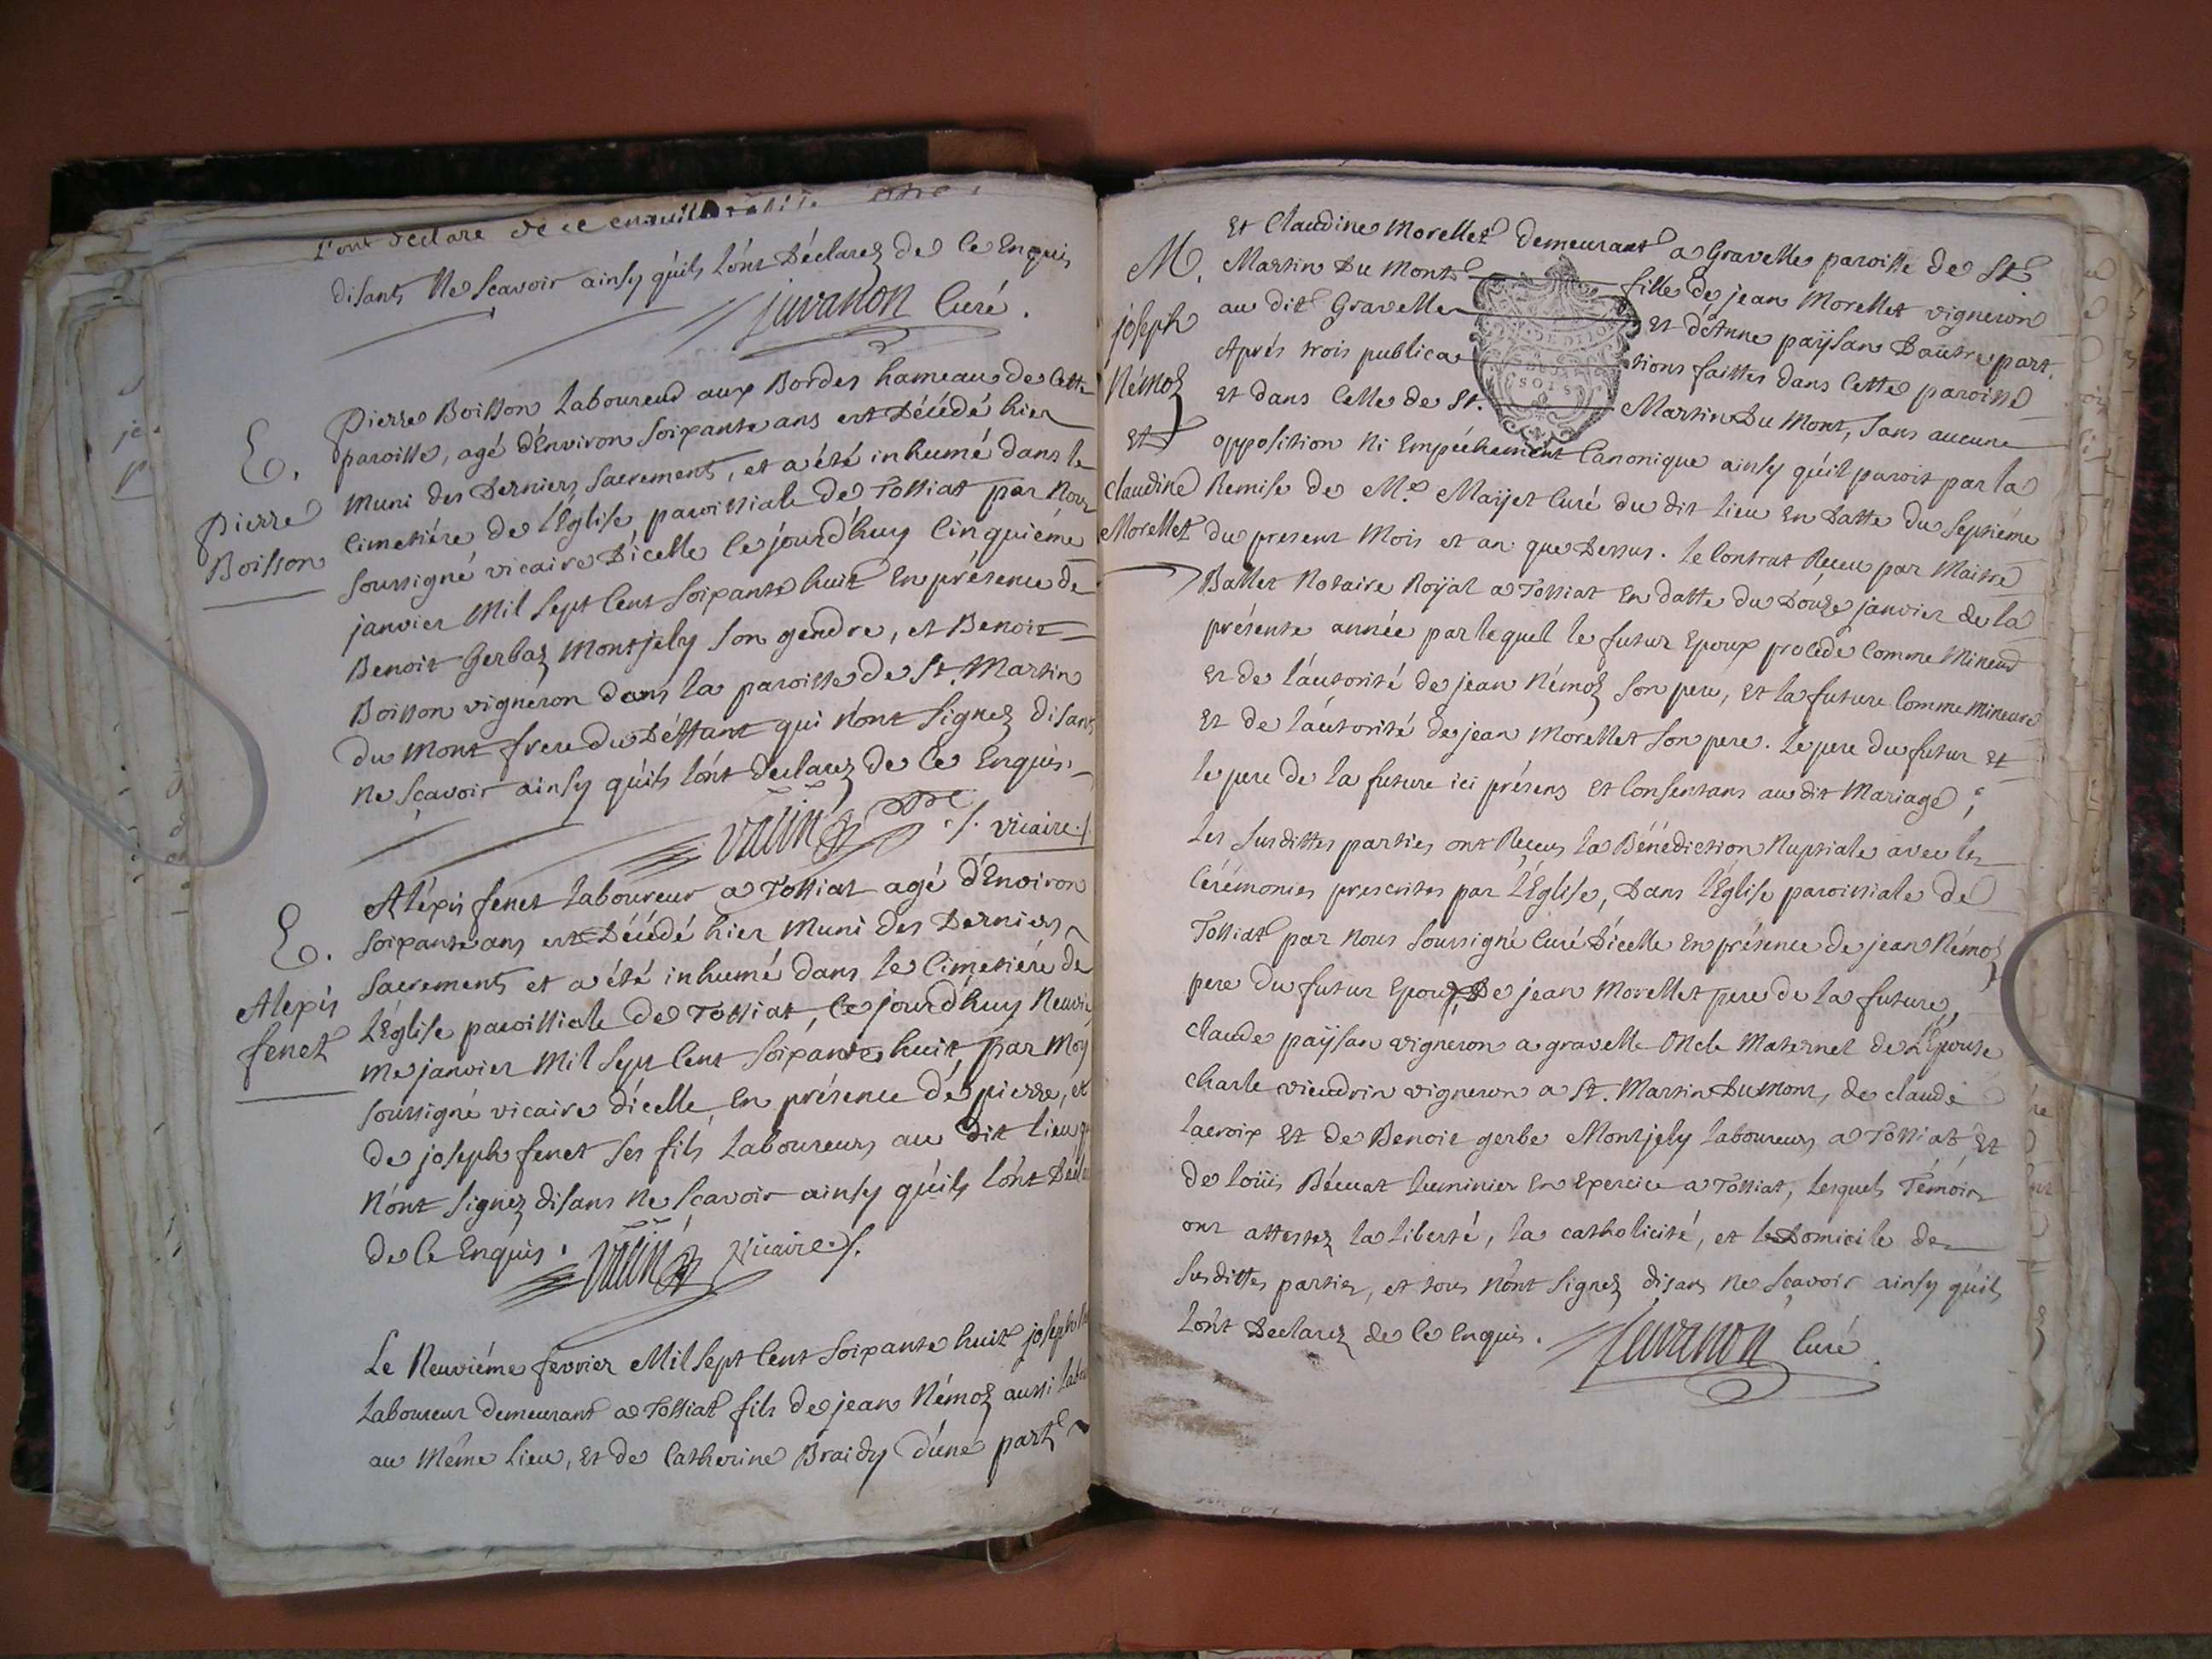 l'ont declaré de ce enquis
disants Ne Scavoir ainsy qúils lónt Déclarez de Ce Enquis
Juvanon Curé.
E.
Pierre
Boisson
Pierre Boisson Laboureur aux Bordes hameau de Cette
paroisse, agé d'Environ Soixante ans est Décédé hier
Muni des Derniers Sacrements, et a été inhumé dans le
Cimetiére de l'Eglise paroissiale de Tossiat par Nous
Soussigné vicaire D'icelle Ce jourd'huy Cinquiéme
janvier Mil Sept Cent Soixante huit En présence de
Benoit Gerbaz Montjely Son gendre, et Benoit
Boisson vigneron dans la paroisse de St. Martin
du Mont frere du Déffunt qui N'ont Signez disants
Ne Sçavoir ainsy qúils lónt declarez de Ce Enquis.
vicaire
E.
Alexis
fenet
Aléxis fenet Laboureur a Tossiat agé d'Environ
Soixante ans est Décédé hier Muni des Derniers
Sacrements et a été inhumé dans le Cimetiére de
l'Eglise paroissiale de Tossiat, Ce jourd'huy Neuvié
me janvier Mil Sept Cent Soixante huit, par Moy
Soussigné vicaire d'icelle En présence de pierre, et
de joseph fenet Ses fils Laboureurs au dit lieu qui
N'ont Signez disans Ne Scavoir ainsy qúils lónt Decla
de Ce Enquis. vicaire
Le Neuviéme fevrier Mil Sept Cent Soixante huit joseph
Laboureur demeurant a Tossiat fils de jean Némoz aussi labou
au Même Lieu, et de Catherine Braidy d'une part
M.
joseph
Némoz
et
Claudine
Morellet
Et Claudine Morellet demeurant a Gravelle paroisse de St
Martin Du Mont fille de jean Morellet vigneron
au dit Gravelle Et d'Anne paÿsan D'autre part.
Aprés trois publications faittes dans Cette paroisse
et dans Celle de St. Martin Du Mont, Sans aucune
opposition Ni Empéchement Canonique ainsy qúil paroit par la
Remise de Me Maÿet Curé du dit Lieu En Datte du Septiéme
du present Mois et an que Dessus. Le Contrat Reçeu par Maitre
Ballet Notaire Roÿal a Tossiat En datte du Douze janvier de la
présente année par lequel le futur Epoux procéde Comme Mineur
Et de l'autorité de jean Némoz Son pere, Et la future Comme Mineure
Et de l'autorité de jean Morellet Son pere. Le pere du futur Et
le pere de la future ici présens Et Consentans au dit Mariage;
Les Susdittes parties ont Reçeus la Bénédiction Nuptiale avec les
Cérémonies prescrites par l'Eglise, Dans l'Eglise paroissiale de
Tossiat par Nous Soussigné Curé D'icelle En présence de jean Némoz
pere Du futur Epoux, De jean Morellet pere de la future,
Claude paÿsan vigneron a gravelle Oncle Maternel de l'Epouse
Charle vieudrin vigneron a St. Martin Du Mont, de claude
Lacroix Et de Benoit gerbe Montjely Laboureurs a Tossiat, Et
de loüis Bécuat Luminier En Exercice a Tossiat, Lesquels Témoins
ont attestez la liberté, la catholicité, et le Domicile des
Susdittes parties, et tous N'ont Signez disans Ne Sçavoir ainsy qúils
lónt Declarez de Ce Enquis. Juvanon Curé